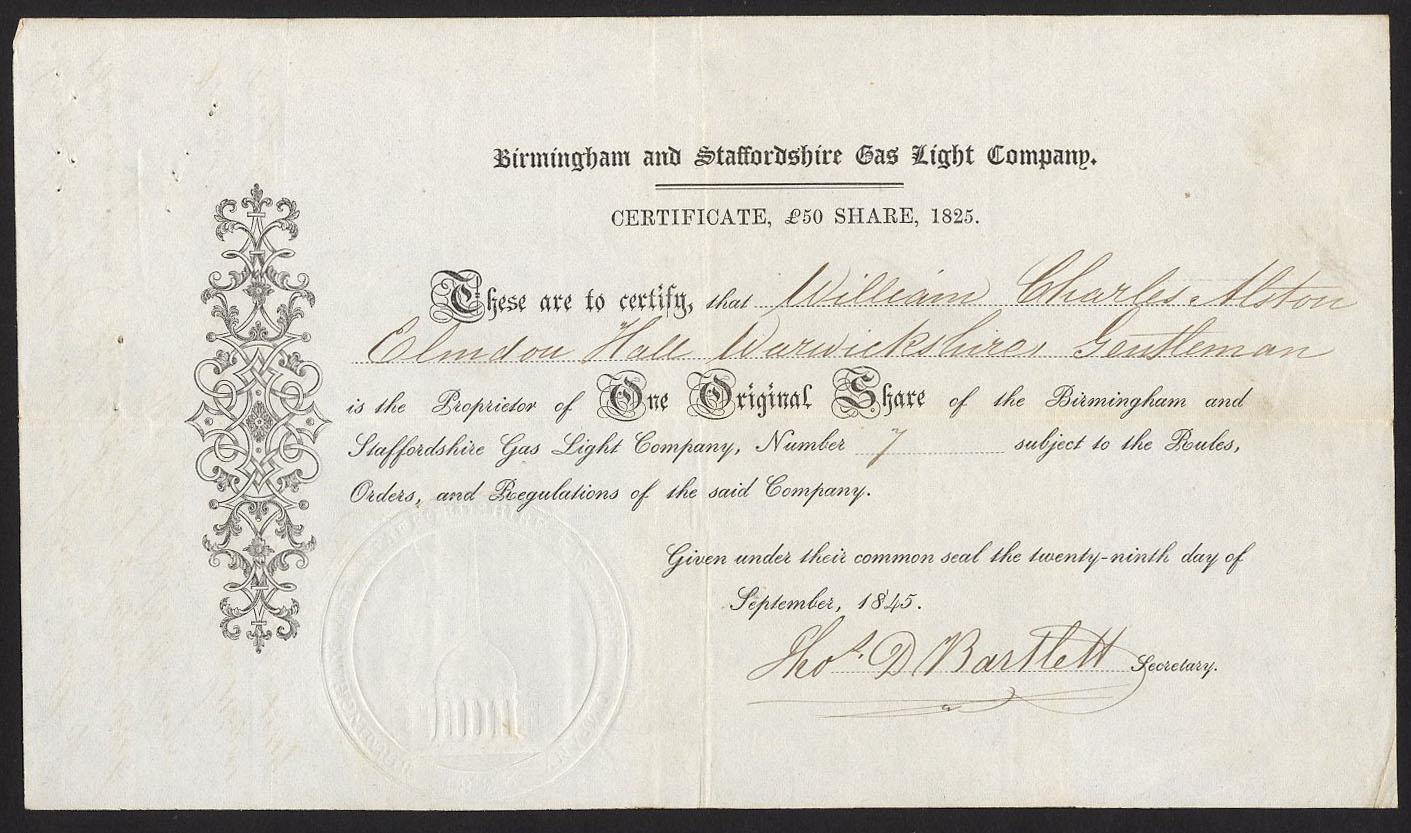 Birmingham and Staffordshire Gas Light Company.
CERTIFICATE, £50 SHARE, 1825.
These are to certify, that William Charles Alston
Elmdon Hall Warwickshire Gentleman
is the Proprietor of One Original Share of the Birmingham and
Staffordshire Gas Light Company, Number 7 subject to the Rules,
Orders, and Regulations of the said Company.
Given under their common seal the twenty-ninth day of
September, 1845.
Thos. D Bartlett Secretary.